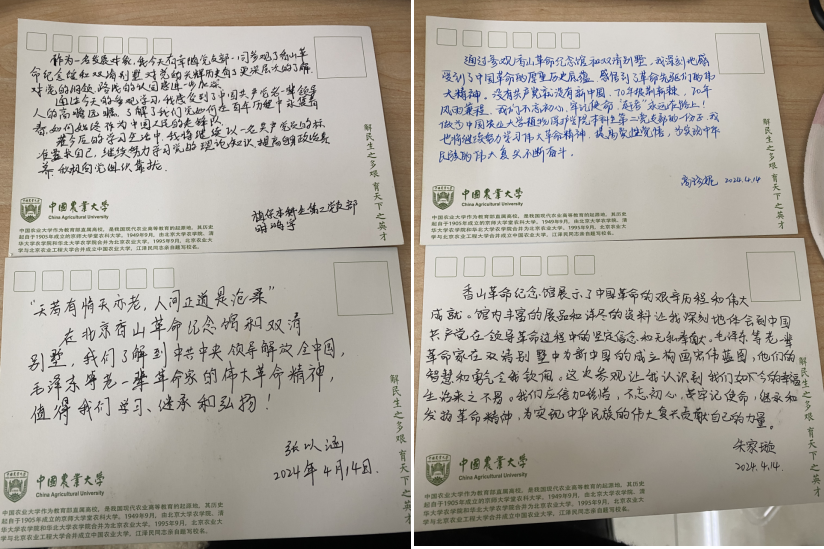 作为一名发展对象,我今天有幸随党支部一同参观了香山革
命纪念馆和双清别墅,对党的光辉历史有了更深层次的了解
对党的问题、路线的认同感进一步加深
通过今天的参观学习,我感受到了中国共产党老一辈领导
人的高瞻远瞩,了解了我们党如何在百年历程中永葆青
春,如何始终作为中国人民的先锋队
在今后的学习生活中,我将继续以一名共产党员的标
准要求自己,继续努力学习党的理论知识,提高明政治素
养,积极向党组织靠拢
植保本科生第二党支部
明鸣宇
解民生之多艰 育天下之英才
中国农业大学
China Agricultural University
中国农业大学作为教育部直属高校,是我国现代农业高等教育的起源地,其历史
起自于1905年成立的京师大学堂农科大学。1949年9月,由北京大学农学院、清
华大学农学院和华北大学农学院合并为北京农业大学。1995年9月,北京农业大
学与北京农业工程大学合并成立中国农业大学,江泽民同志亲自题写校名。
“天若有情天亦老,人间正道是沧桑”
在北京香山革命纪念馆和双清
别墅,我们了解到中共中央领导解放全中国,
毛泽东等老一辈革命家的伟大革命精神,
值得我们学习、继承和弘扬!
张以涵
2024年4月14日.
解民生之多艰 育天下之英才
中国农业大学
China Agricultural University
中国农业大学作为教育部直属高校,是我国现代农业高等教育的起源地,其历史
起自于1905年成立的京师大学堂农科大学。1949年9月,由北京大学农学院、清
华大学农学院和华北大学农学院合并为北京农业大学。1995年9月,北京农业大
学与北京农业工程大学合并成立中国农业大学,江泽民同志亲自题写校名。
通过参观香山革命纪念馆和双清别墅,我深刻地感
受到了中国革命的厚重历史底蕴,感悟到了革命先辈们的伟
大精神。没有共产党就没有新中国,70年披荆斩棘,70年
风雨兼程,我们不忘初心,牢记使命,“赶考”永远在路上!
做为中国农业大学植物保护学院本科生第二党支部的一份子,我
也将继续努力学习伟大革命精神,提高党性觉悟,为实现中华
民族的伟大复兴不断奋斗。
2024.4.14
解民生之多艰 育天下之英才
中国农业大学
China Agricultural University
中国农业大学作为教育部直属高校,是我国现代农业高等教育的起源地,其历史
起自于1905年成立的京师大学堂农科大学。1949年9月,由北京大学农学院、清
华大学农学院和华北大学农学院合并为北京农业大学。1995年9月,北京农业大
学与北京农业工程大学合并成立中国农业大学,江泽民同志亲自题写校名。
香山革命纪念馆展示了中国革命的艰辛历程和伟大
成就。馆内丰富的展品和详尽的资料让我深刻地体会到中国
共产党在领导革命过程中的坚定信念和无私奉献。毛泽东等老一辈
革命家在双清别墅中为新中国的成立构画宏伟蓝图,他们的
智慧和勇气令我钦佩。这次参观让我认识到我们如今的幸福
生活来之不易。我们应倍加珍惜,不忘初心,牢记使命,继承和
发扬革命精神,为实现中华民族的伟大复兴贡献自己的力量。
朱家璇
2024.4.14.
解民生之多艰 育天下之英才
中国农业大学
China Agricultural University
中国农业大学作为教育部直属高校,是我国现代农业高等教育的起源地,其历史
起自于1905年成立的京师大学堂农科大学。1949年9月,由北京大学农学院、清
华大学农学院和华北大学农学院合并为北京农业大学。1995年9月,北京农业大
学与北京农业工程大学合并成立中国农业大学,江泽民同志亲自题写校名。